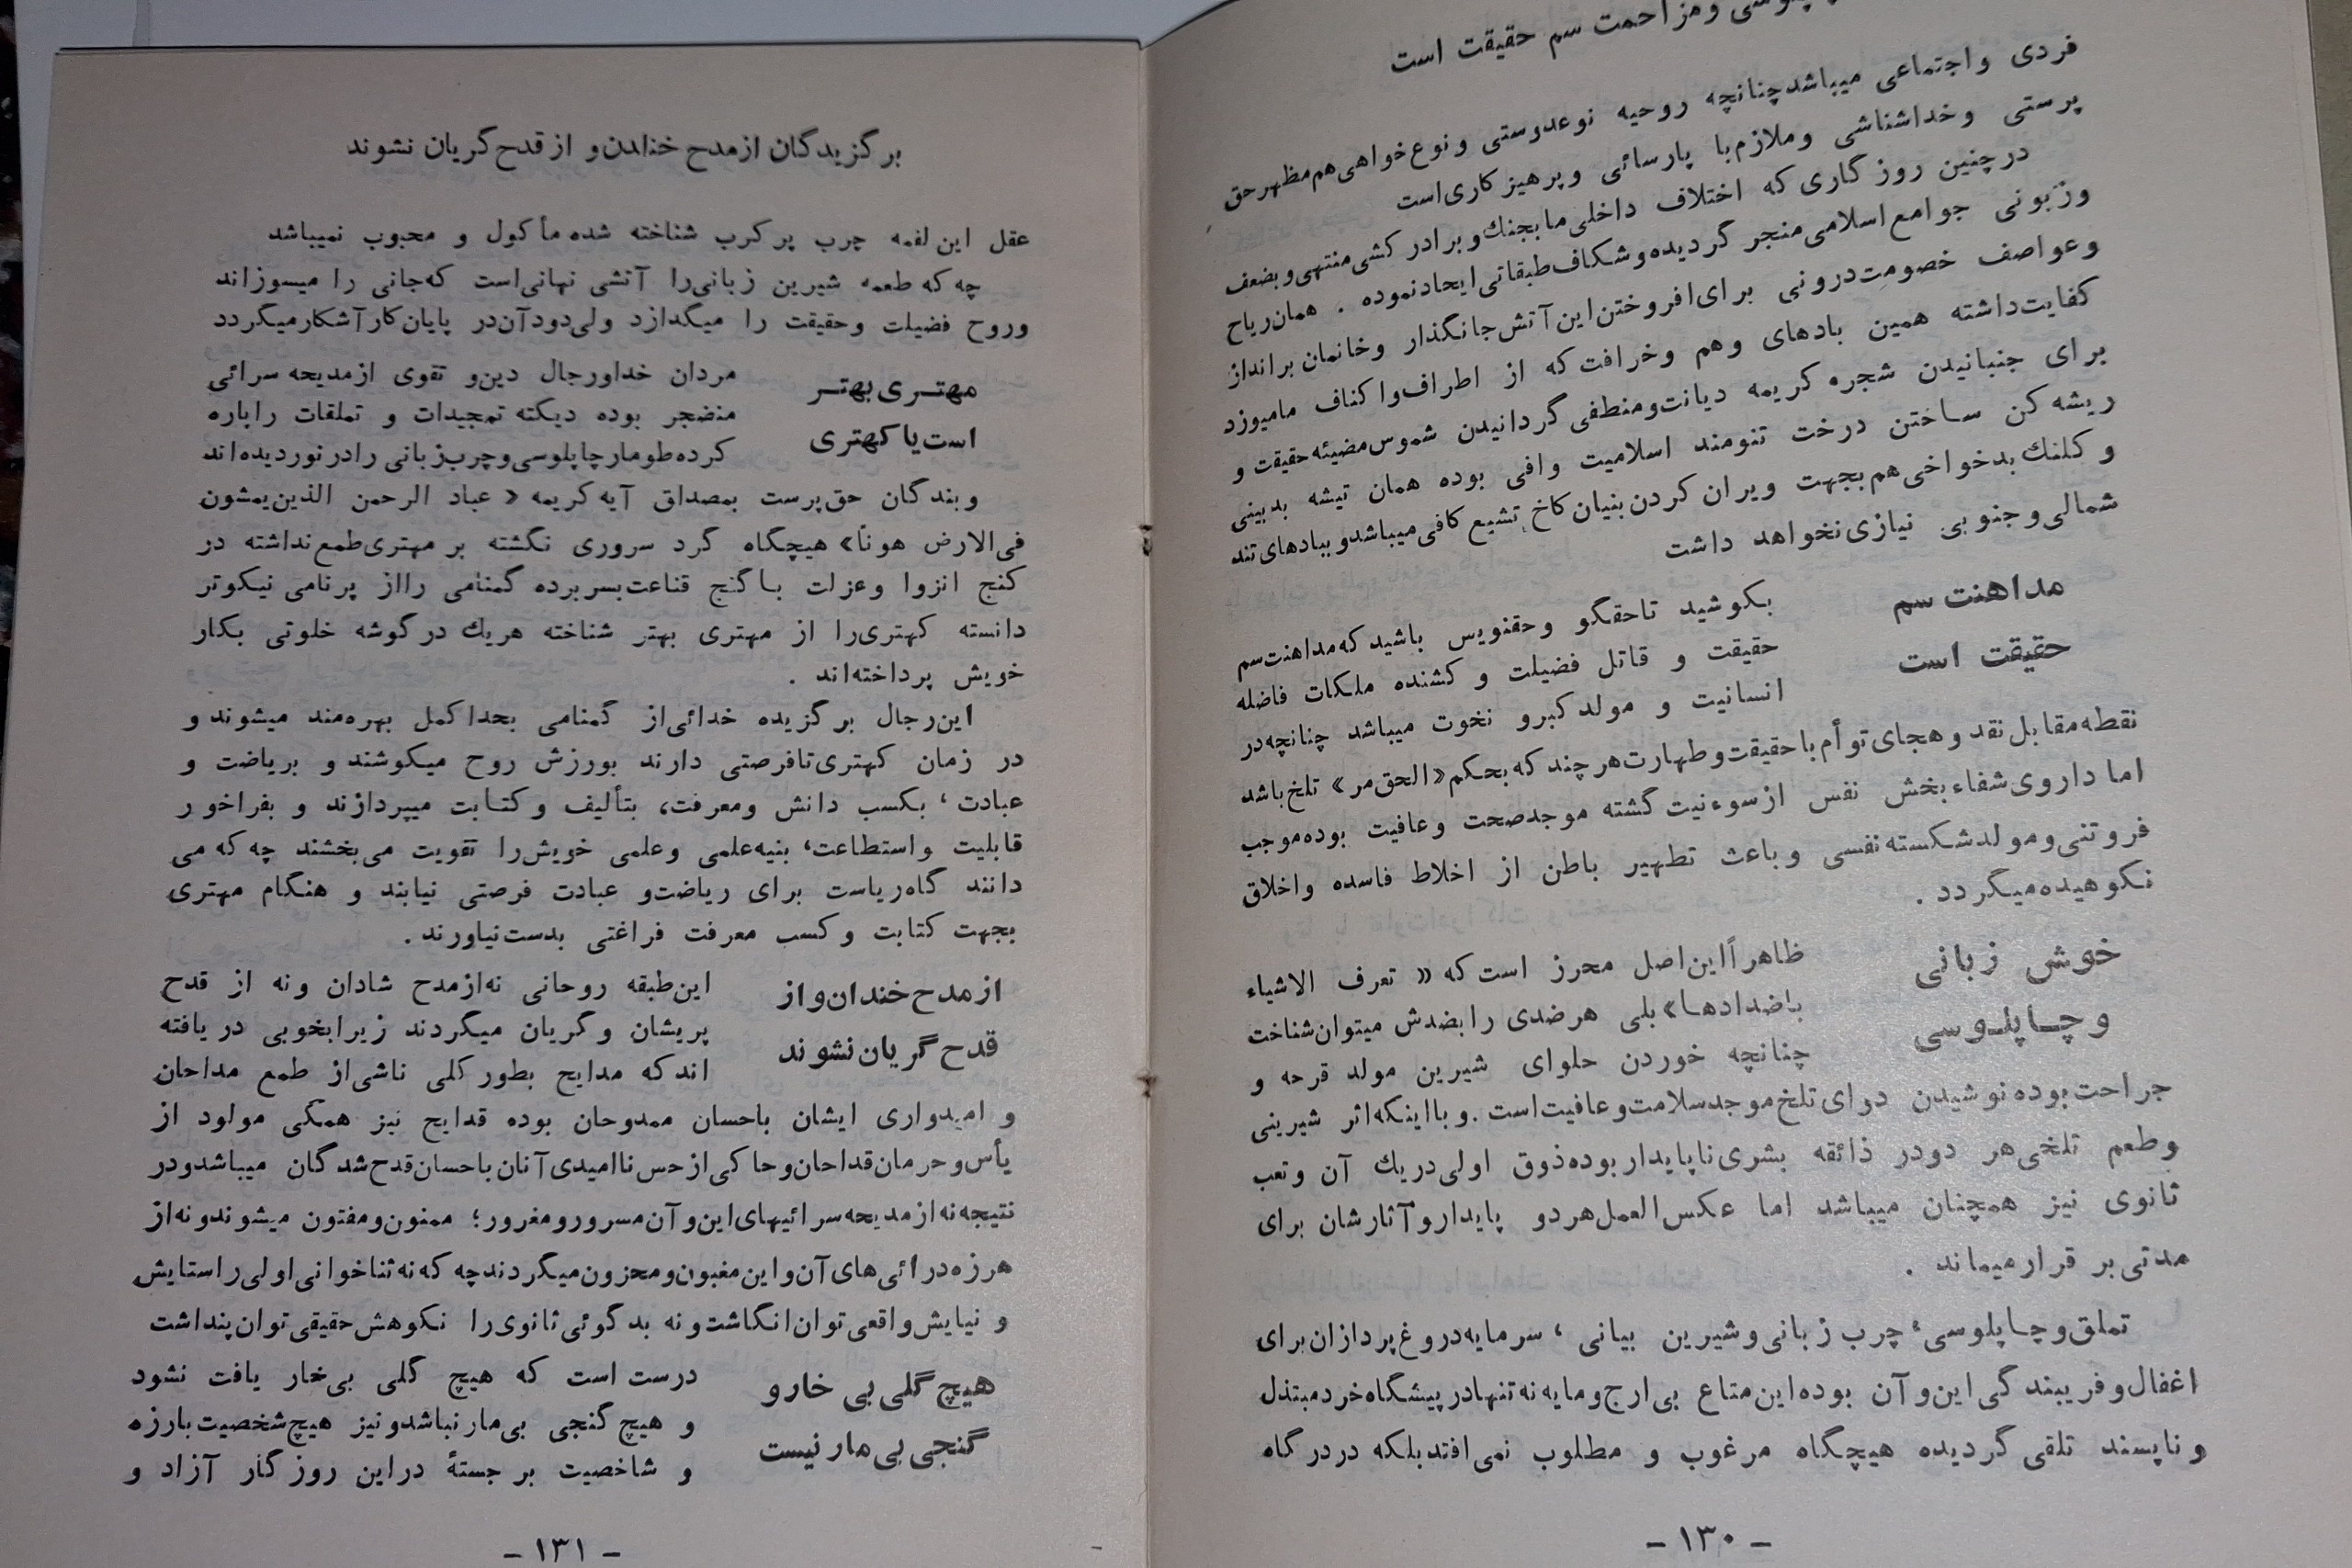 ومزاحمت سم حقیقت است
فردی واجتماعی میباشدچنانچه روحیه نوعدوستی ونوع‌خواهی‌هم‌مظهرحق
پرستی وخداشناشی وملازم‌با پارسائی وپرهیزکاری‌است
درچنین روزگاری‌که اختلاف داخلی‌مابجنك‌وبرادرکشی‌منتهی‌وبضعف
وزبونی جوامع‌اسلامی‌منجر گردیده‌وشکاف‌طبقاتی‌ایجادنموده . همان‌ریاح
وعواصف خصومت‌درونی برای‌افروختن‌این‌آتش‌جانگذار وخانمان‌برانداز
کفایت‌داشته همین بادهای وهم وخرافت‌که از اطراف‌واکناف مامیوزد
برای جنبانیدن شجره‌کریمه دیانت‌ومنطفی‌گردانیدن شموس‌مضیئه‌حقیقت و
ریشه‌کن ساختن درخت تنومند اسلامیت وافی بوده همان تیشه بدبینی
وکلنك‌بدخواخی‌هم‌بجهت ویران‌کردن‌بنیان‌کاخ تشیع‌کافی‌میباشدوببادهای‌تند
شمالی‌وجنوبی نیازی‌نخواهد داشت
مداهنت سم
حقیقت است
بکوشید تاحقگو وحقنویس باشیدکه‌مداهنت‌سم
حقیقت و قاتل فضیلت وکشنده ملکات فاضله
انسانیت و مولدکبرو نخوت میباشد چنانچه‌در
نقطه‌مقابل‌نقد وهجای‌توأم‌باحقیقت‌وطهارت‌هرچندکه‌بحکم«الحق‌مر» تلخ‌باشد
اما داروی‌شفاءبخش نفس ازسوءنیت‌گشته موجدصحت وعافیت بوده‌موجب
فروتنی‌ومولدشکسته‌نفسی وباعث تطهیر باطن از اخلاط فاسده واخلاق
نکوهیده‌میگردد .
خوش زبانی
وچاپلوسی
ظاهراًاین‌اصل محرز است‌که « تعرف الاشیاء
باضدادها» بلی هرضدی رابضدش میتوان‌شناخت
چنانچه خوردن حلوای شیرین مولد قرحه و
جراحت‌بوده‌نوشیدن دوای‌تلخ‌موجدسلامت‌وعافیت‌است .وبااینکه‌اثر شیرینی
وطعم تلخی‌هر دودر ذائقه بشری‌ناپایداربوده‌ذوق اولی‌دریك آن وتعب
ثانوی نیز همچنان میباشد اما عکس‌العمل‌هردو پایداروآثارشان برای
مدتی‌بر قرارمیماند .
تملق‌وچاپلوسی، چرب زبانی‌وشیرین بیانی ، سرمایه‌دروغ‌پردازان‌برای
اغفال‌وفریبندگی‌این‌وآن بوده‌این‌متاع بی‌ارج‌ومایه‌نه‌تنهادرپیشگاه‌خردمبتذل
وناپسند تلقی‌گردیده هیچگاه مرغوب و مطلوب نمی‌افتدبلکه دردرگاه
- ۱۳۰ -
برگزیدگان ازمدح خندان و ازقدح گریان نشوند
عقل این‌لقمه چرب پرکرب شناخته شده‌مأکول و محبوب نمیباشد
چه‌که طعمه شیرین زبانی‌را آتشی نهانی‌است که‌جانی را میسوزاند
وروح فضیلت وحقیقت را میگدازد ولی‌دودآن‌در پایان‌کارآشکارمیگردد
مهتری‌بهتر
است‌یاکهتری
مردان خداورجال دین‌و تقوی ازمدیحه‌سرائی
منضجر بوده دیکته‌تمجیدات و تملقات راباره
کرده‌طومارچاپلوسی‌وچرب‌زبانی رادرنوردیده‌اند
وبندگان حق‌پرست بمصداق آیه‌کریمه « عباد الرحمن الذین‌یمشون
فی‌الارض هوناً» هیچگاه گرد سروری نگشته برمهتری‌طمع‌نداشته در
کنج انزوا وعزلت باگنج قناعت‌بسربرده گمنامی رااز پرنامی نیکوتر
دانسته کهتری‌را از مهتری بهتر شناخته هریك درگوشه خلوتی بکار
خویش پرداخته‌اند .
این‌رجال برگزیده خدائی‌از گمنامی بحداکمل بهره‌مند میشوند و
در زمان کهتری‌تافرصتی دارند بورزش روح میکوشند و بریاضت و
عبادت ، بکسب دانش ومعرفت، بتألیف وکتابت میپردازند و بفراخور
قابلیت واستطاعت، بنیه‌علمی وعلمی خویش‌را تقویت می‌بخشند چه‌که می
دانند گاه‌ریاست برای ریاضت‌و عبادت فرصتی نیابند و هنگام مهتری
بجهت کتابت وکسب معرفت فراغتی بدست‌نیاورند .
ازمدح‌خندان‌واز
قدح‌گریان‌نشوند
این‌طبقه روحانی نه‌ازمدح شادان ونه از قدح
پریشان وگریان میگردند زیرابخوبی در یافته
اندکه مدایح بطورکلی ناشی‌از طمع مداحان
و امیدواری ایشان باحسان ممدوحان بوده قدایح نیز همگی مولود از
یأس‌وحرمان‌قداحان‌وحاکی‌ازحس‌ناامیدی‌آنان‌باحسان‌قدح‌شدگان میباشدودر
نتیجه‌نه‌ازمدیحه‌سرائیهای‌این‌وآن‌مسرورومغرور؛ ممنون‌ومفتون میشوندونه‌از
هرزه‌درائی‌های‌آن‌واین‌مغبون‌ومحزون‌میگردندچه‌که‌نه‌ثناخوانی‌اولی‌راستایش
و نیایش‌واقعی‌توان‌انگاشت‌ونه بدگوئی‌ثانوی‌را نکوهش‌حقیقی‌توان‌پنداشت
هیچ‌گلی‌بی خارو
گنجی‌بی‌مارنیست
درست است که هیچ گلی بی‌خار یافت نشود
و هیچ‌گنجی بی‌مارنباشدونیز هیچ‌شخصیت‌بارزه
و شاخصیت برجستهٔ دراین روزگار آزاد و
- ۱۳۱ -